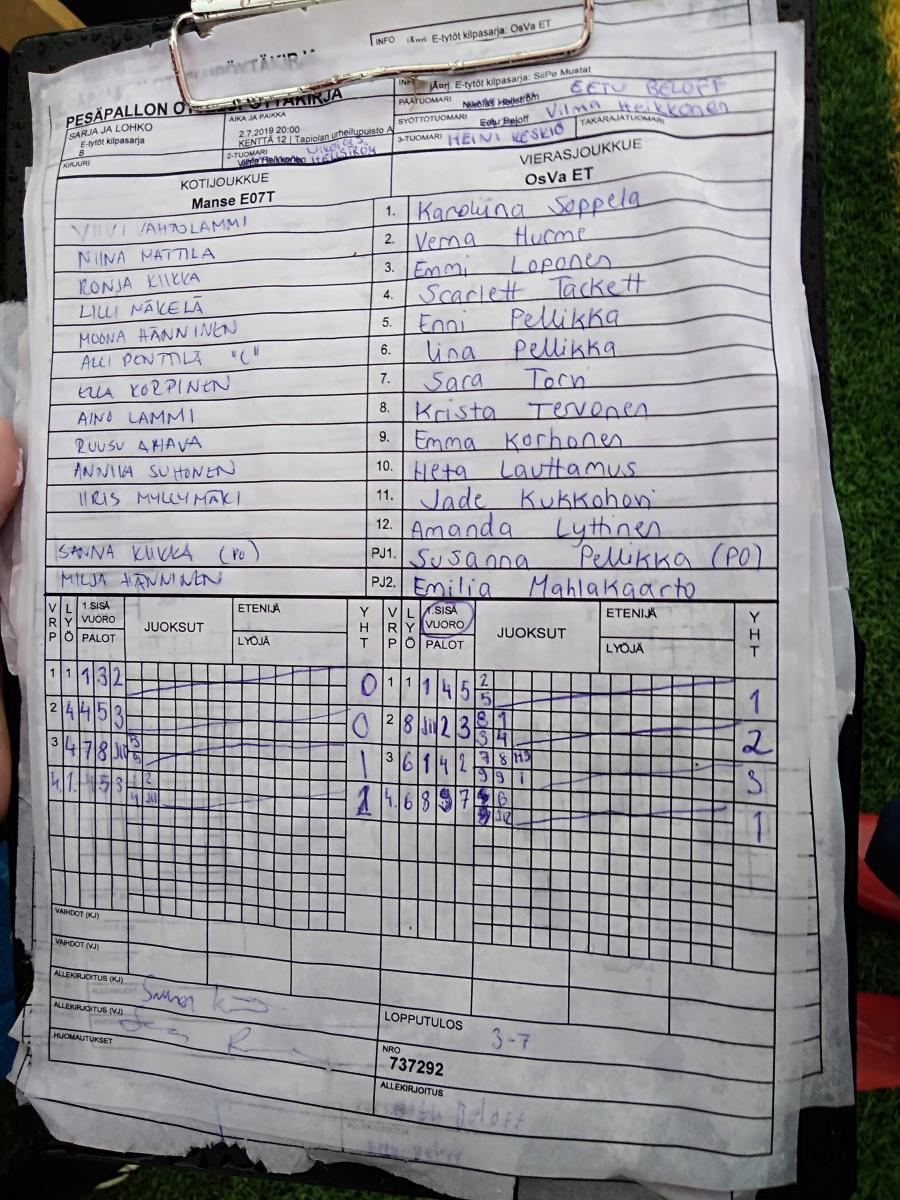 INFO jÄari E-tytöt kilpasarja: OsVa ET
PESÄPALLON
jÄarj. E-tytöt kilpasarja: SiiPe Mustat
SARJA JA LOHKO
E-tytöt kilpasarja
B
KIRJURI
AIKA JA PAIKKA
2.7.2019 20:00
KENTTÄ 12 | Tapiolan urheilupuisto A
2-TUOMARI
PÄÄTUOMARI Nikolas Hellström EETU BELOFF
SYÖTTÖTUOMARI Eetu Beloff Vilma Heikkonen
3-TUOMARI HEINI KESKIÖ TAKARAJATUOMARI
KOTIJOUKKUE
Manse E07T
VIERASJOUKKUE
OsVa ET
VIIVI VAHTOLAMMI 1. Karoliina Soppela
NIINA MATTILA 2. Verna Hurme
RONJA KIIKKA 3. Emmi Loponen
LILLI MÄKELÄ 4. Scarlett Tackett
MOONA HÄNNINEN 5. Enni Pellikka
ALLI PENTTILÄ "C" 6. Iina Pellikka
ELLA KORPINEN 7. Sara Torvi
AINO LAMMI 8. Krista Tervonen
RUUSU AHAVA 9. Emma Korhonen
ANNIKA SUHONEN 10. Heta Lauttamus
IIRIS MYLLYMÄKI 11. Jade Kukkohovi
12. Amanda Lyttinen
SANNA KIIKKA (PO) PJ1. Susanna Pellikka (PO)
MILJA HÄNNINEN PJ2. Emilia Mahlakaarto
VRP LYÖ 1.SISÄ VUORO PALOT JUOKSUT ETENIJÄ LYÖJÄ YHT VRP LYÖ 1.SISÄ VUORO PALOT JUOKSUT ETENIJÄ LYÖJÄ YHT
1 1 1 3 2 0 1 1 1 4 5 2 5 1
2 4 4 5 3 0 2 8 2 3 8 1 3 4 2
3 4 7 8 1 3 6 1 4 2 7 8 9 9 3
4. 1. 4 5 3 2 4. 6 8 7 6 1
VAIHDOT (KJ)
VAIHDOT (VJ)
ALLEKIRJOITUS (KJ)
ALLEKIRJOITUS (VJ)
HUOMAUTUKSET
LOPPUTULOS 3-7
NRO
737292
ALLEKIRJOITUS
Beloff